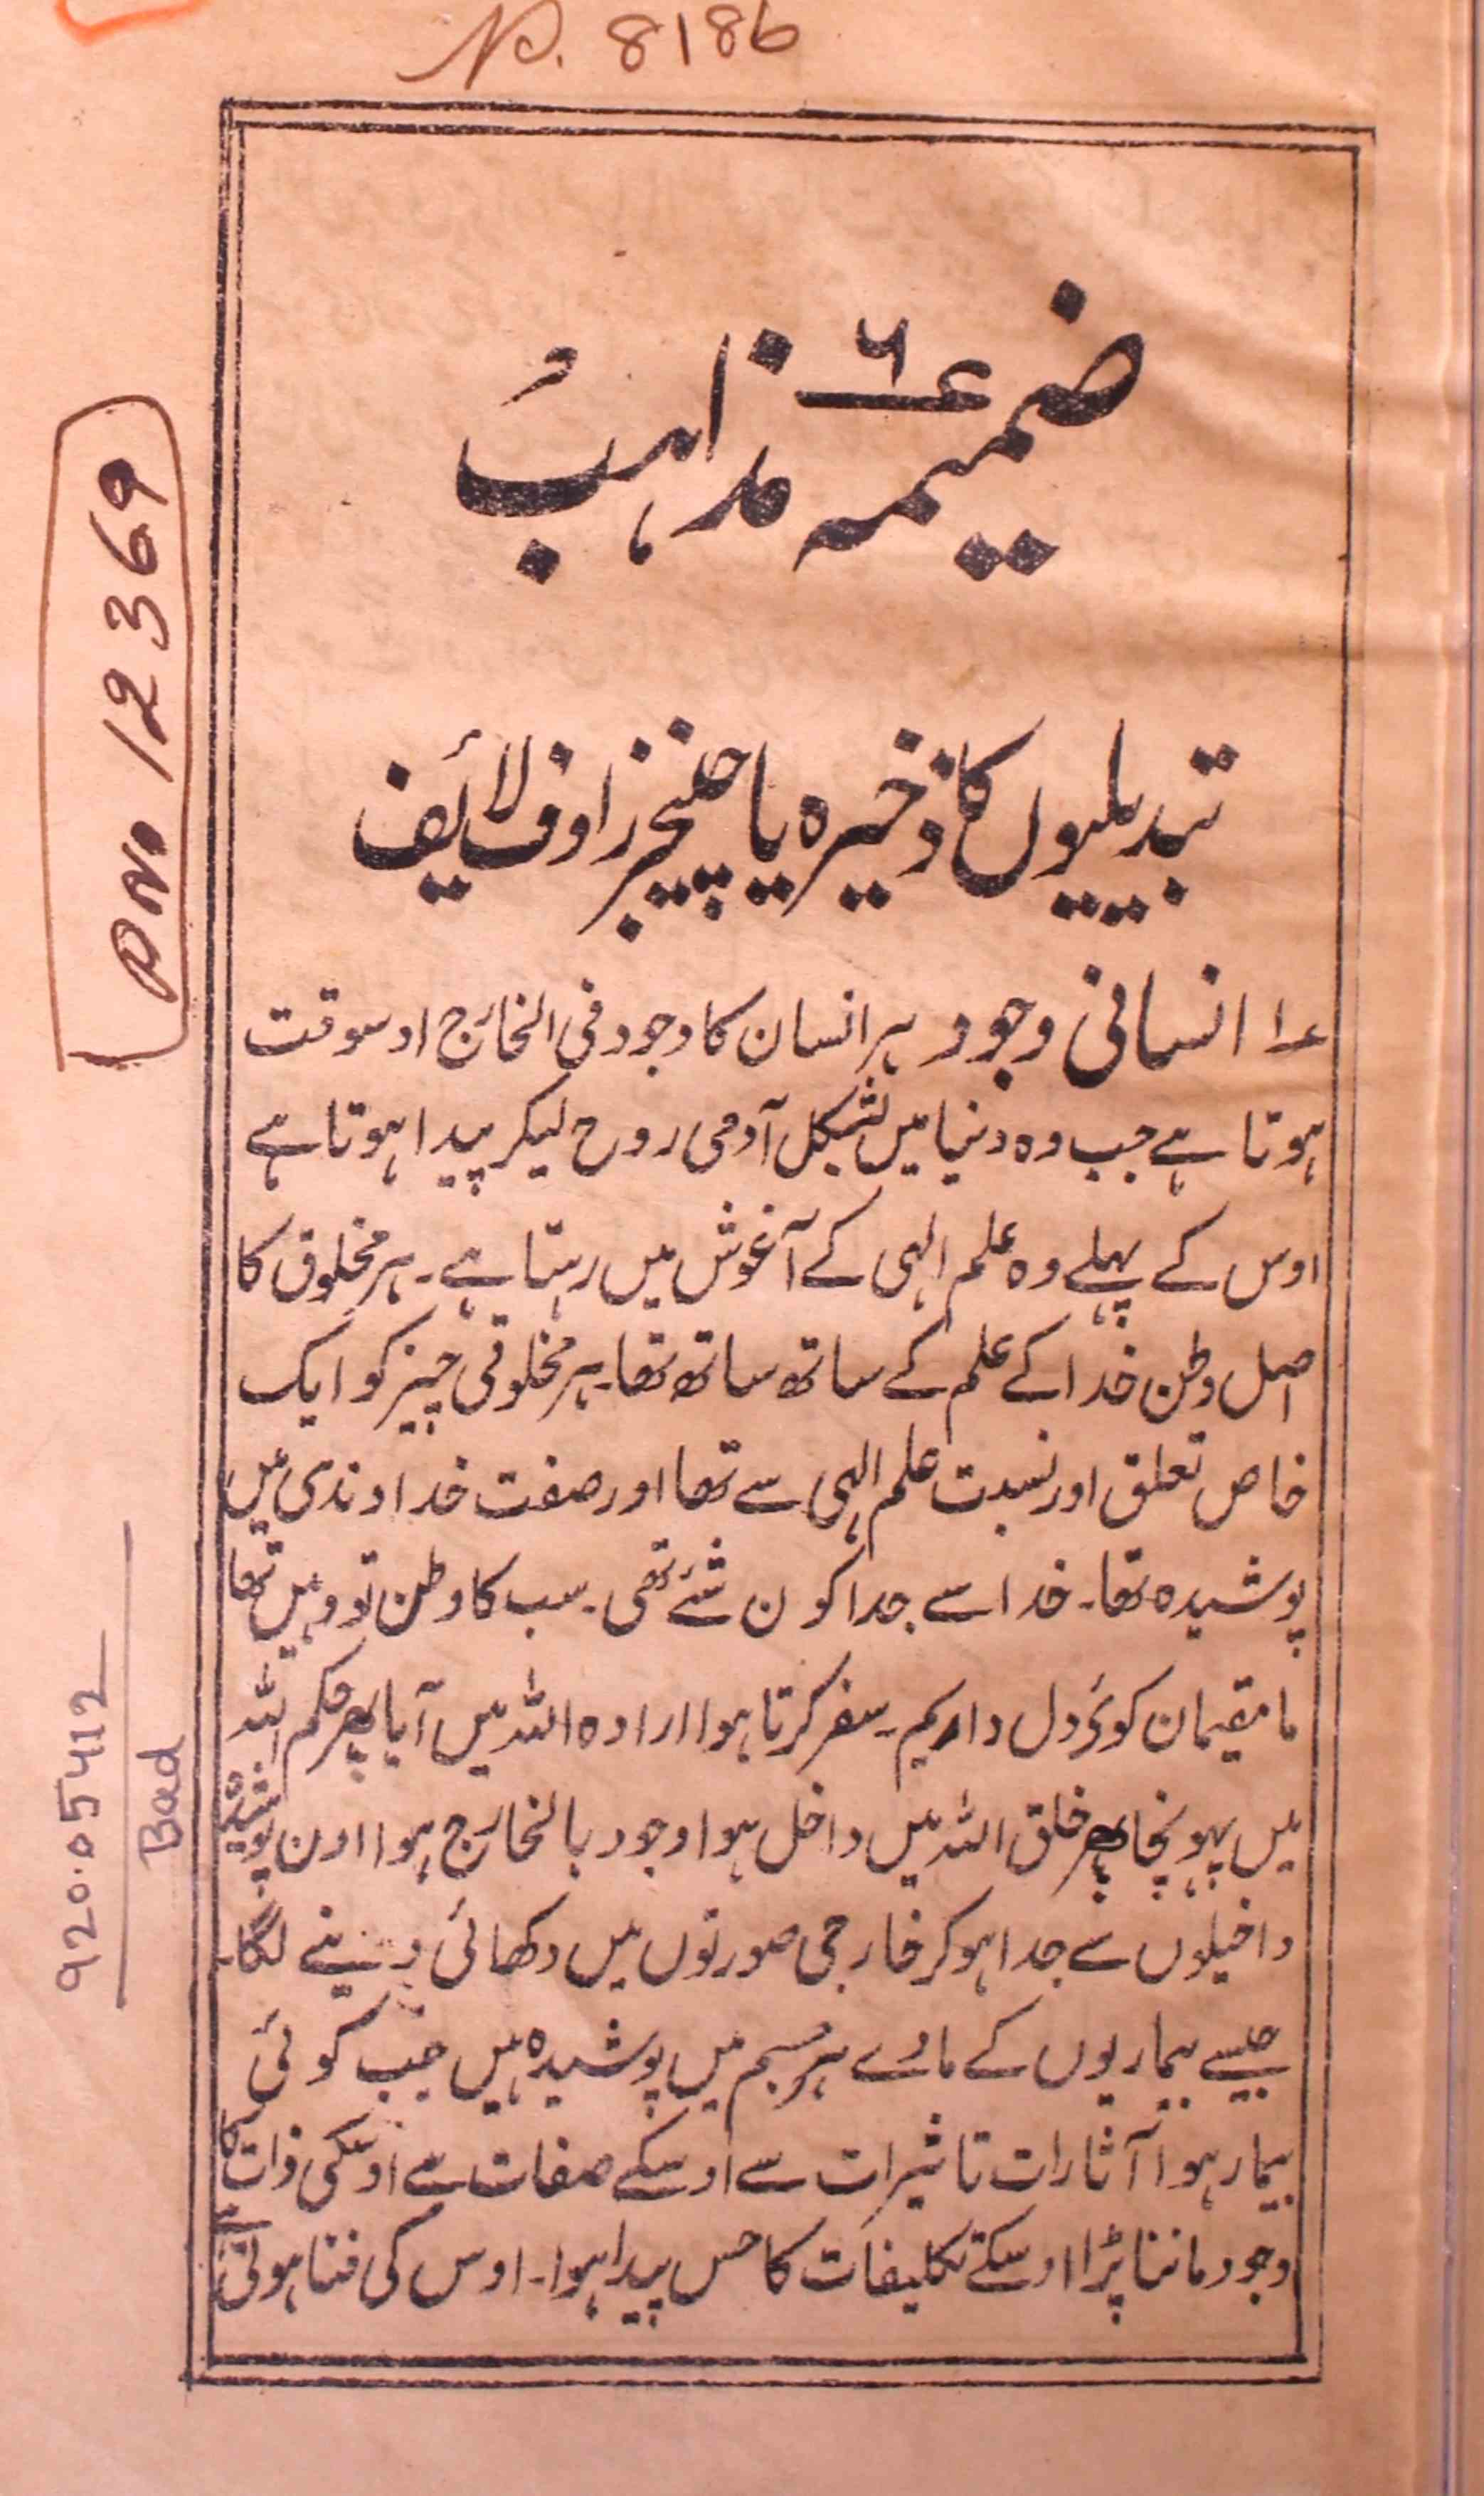 No. 8186
ضمیمہ ۶؁ مذاہب
تبدیلیوں کا ذخیرہ یا چلنجیز اوف لائیف
۱؁ انسانی وجود ہر انسان کا وجود فی الخارج اوسوقت
ہوتا ہے جب وہ دنیا میں بشکل آدمی روح لیکر پیدا ہوتا ہے
اوس کے پہلے وہ علم الہی کے آغوش میں رہتا ہے۔ ہر مخلوق کا
اصل وطن خدا کے علم کے ساتھ ساتھ تھا۔ ہر مخلوقی چیز کو ایک
خاص تعلق اور نسبت علم الہی سے تھا اور صفت خداوندی میں
پوشیدہ تھا۔ خدا سے جدا کون شئے تھی۔ سب کا وطن تو وہیں تھا
ما مقیمان کوئ دل داریم۔ سفر کرتا ہوا ارادہ اللہ میں آیا پھر حکم اللہ
میں پہونچا پھر خلق اللہ میں داخل ہوا وجود بالخارج ہوا اون پوشیدہ
داخیلوں سے جدا ہوکر خارجی صورتوں میں دکھائی دینے لگا۔
جیسے بیماریوں کے مادے ہر جسم میں پوشیدہ ہیں جب کوئی
بیمار ہوا آثارات تاثیرات سے اوسکے صفات سے اوسکی ذات کا
وجود ماننا پڑا اوسکے تکلیفات کا حس پیدا ہوا۔ اوس کی فنا ہوتی ہے
DNo 12369
920.05412
Bad